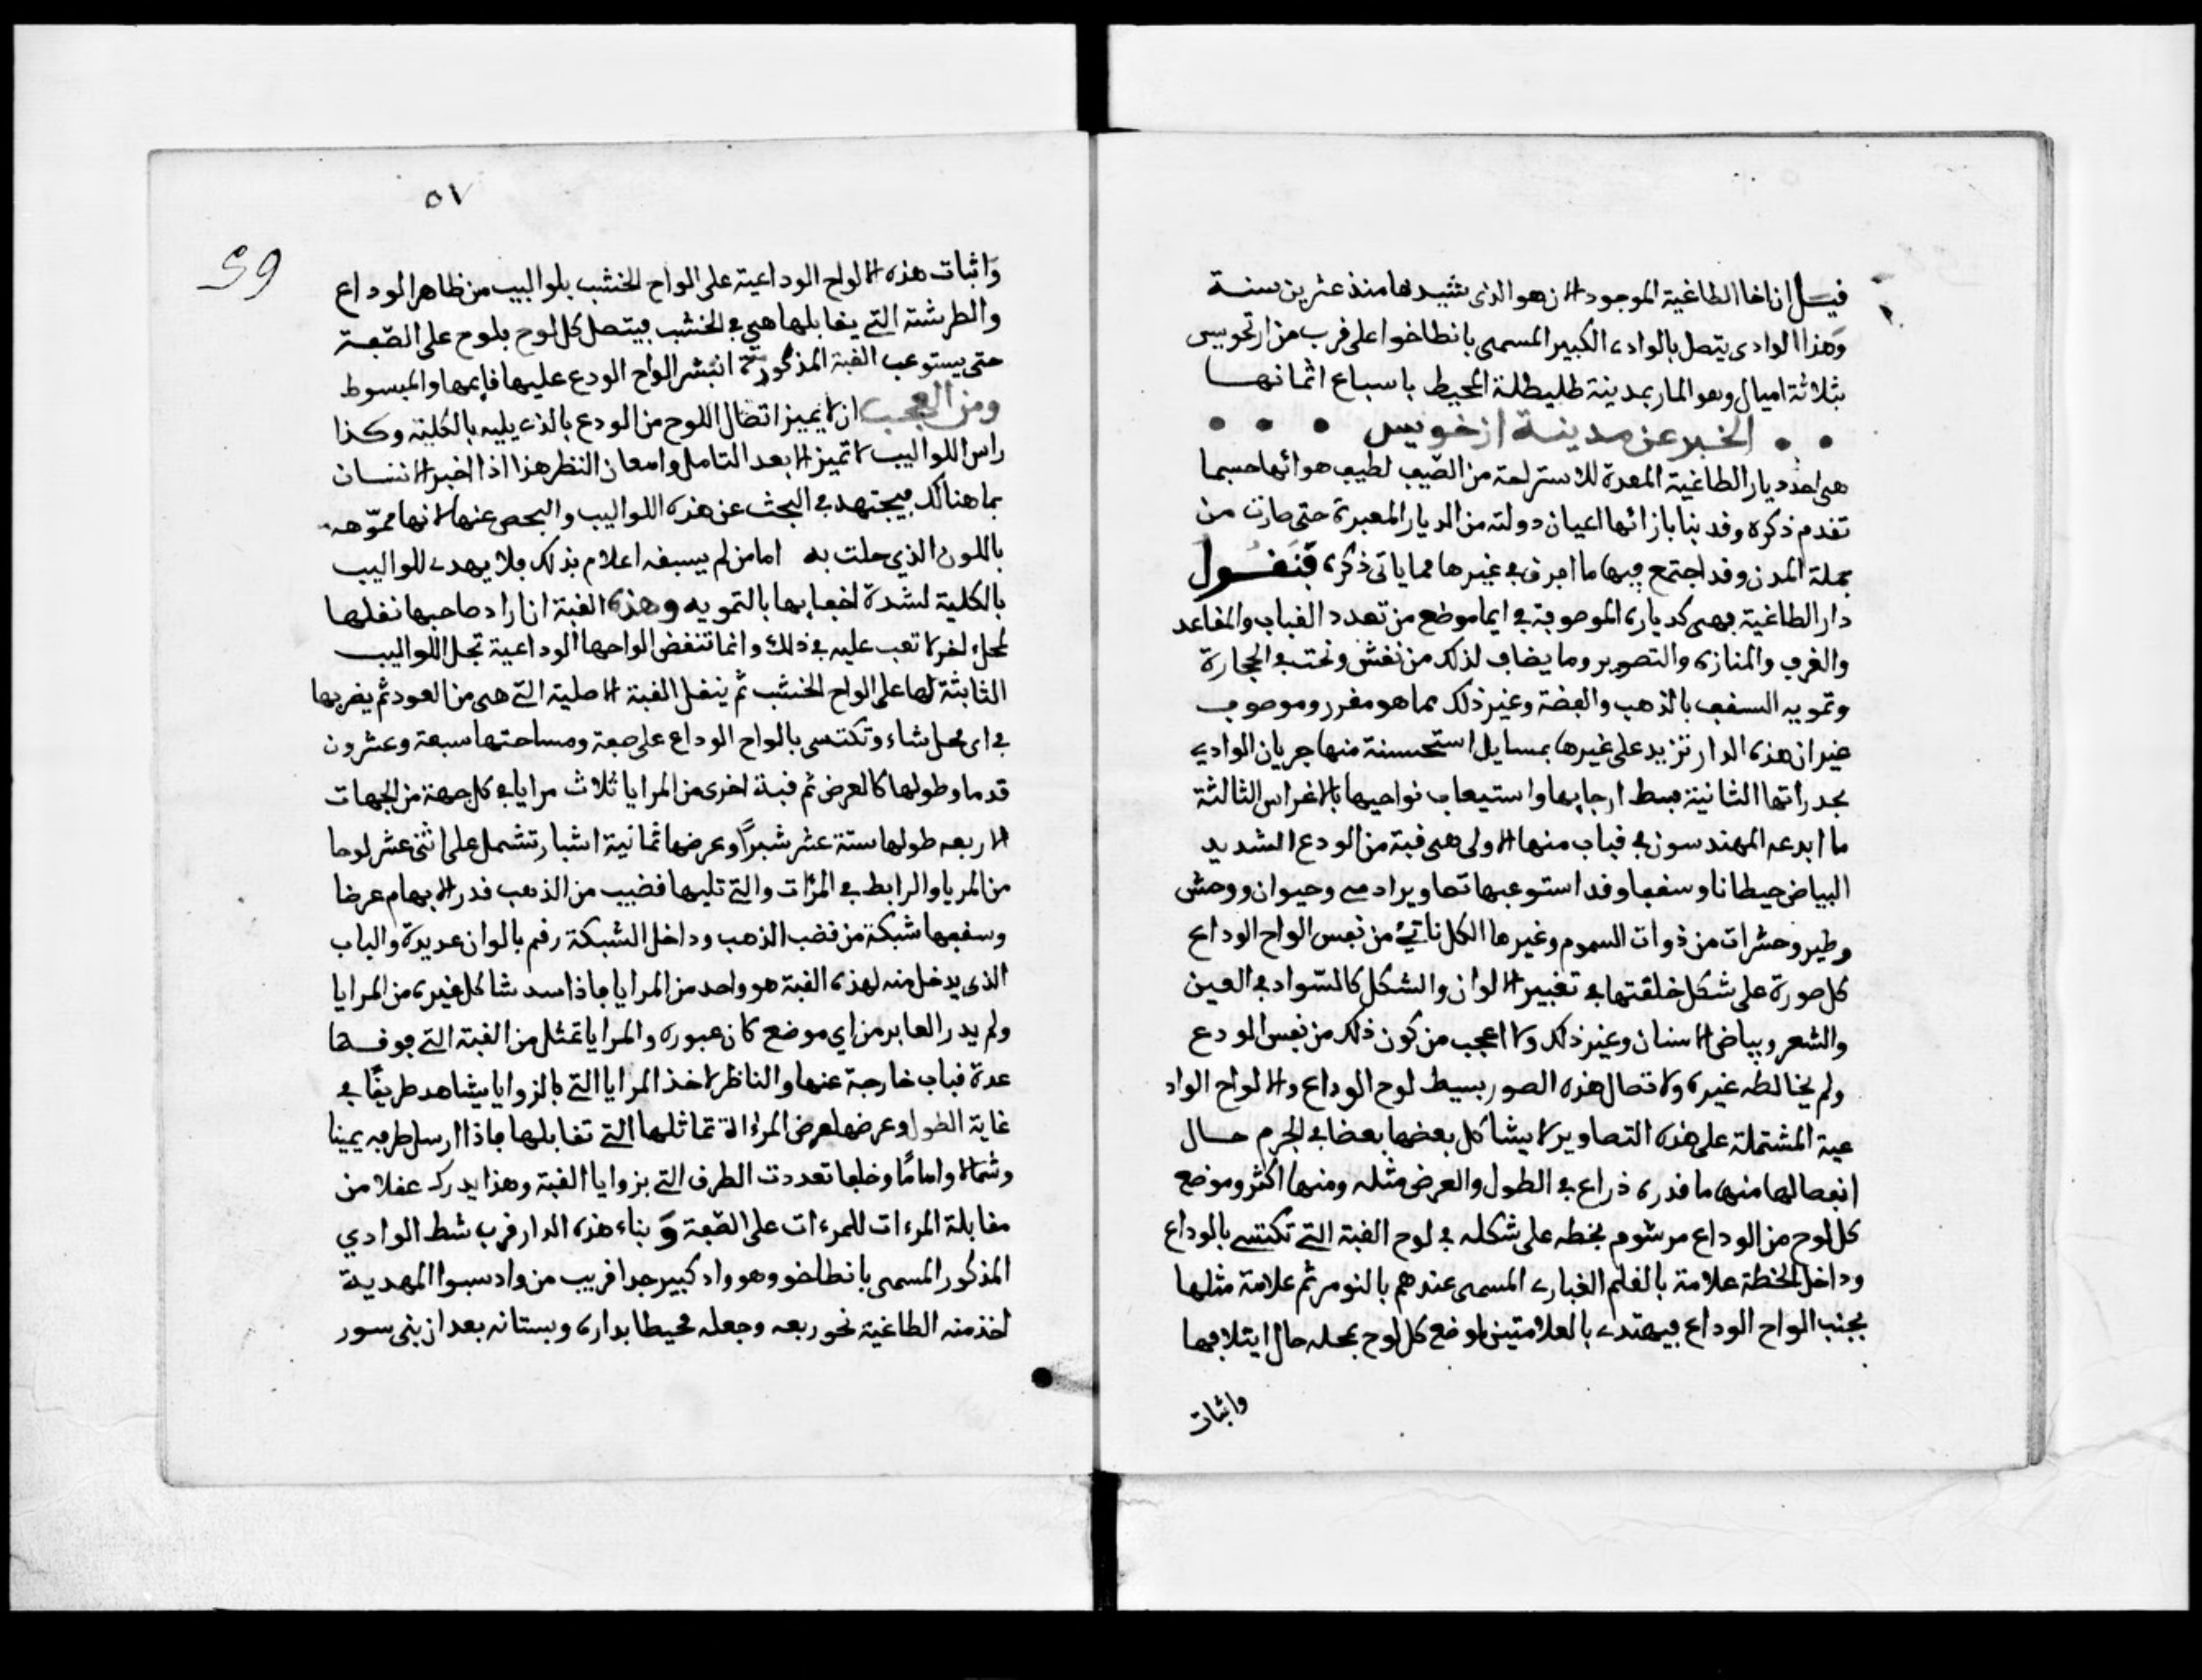 فيل ان اخا الطاغية الموجود الان هو الذي شيدها منذ عشرين سنة
وهذا الوادي يتصل بالوادي الكبير المسمى بانطاخوا على قرب من ارنخويس
بثلاثة اميال وهو المار بمدينة طليطلة المحيط باسباع اثمانها
الخبر عن مدينة ارنخويس
هي احد ديار الطاغية المعدة للاستراحة من الصيف لطيب هوائها حسبما
تقدم ذكره وقد بنا بازائها اعيان دولته من الديار المعبرة حتى صارت من
جملة المدن وقد اجتمع فيها ما افرق في غيرها مما ياتي ذكره فنقول
دار الطاغية فهي كدياره الموصوفة في ايما موضع من تعدد القباب والمقاعد
والغرف والمنازه والتصوير وما يضاف لذلك من نقش ونحت في الحجارة
وتمويه السقف بالذهب والفضة وغير ذلك مما هو مقرر وموصوف
غير ان هذه الدار تزيد على غيرها بمسايل استحسنة منها جريان الوادي
بجدراتها الثانية بسط ارجايها واستيعاب نواحيها بالاغراس الثالثة
ما ابدعه المهندسون في قباب منها الاولى هي قبة من الودع الشديد
البياض حيطانا وسقفا وقد استوعبها تصاوير ادمي وحيوان ووحش
وطير وحشرات من ذوات السموم وغيرها الكل ناتئ من نفس الواح الوداع
كل صورة على شكل خلقتها في تغيير الالوان والشكل كالسواد في العين
والشعر وبياض الاسنان وغير ذلك ولا اعجب من كون ذلك من نفس الودع
ولم يخالطه غيره ولاتصال هذه الصور بسيط لوح الوداع والالواح الواد
عية المشتملة على هذه التصاوير لا يشاكل بعضها بعضا في الجرم حال
انفصالها منها ما قدره ذراع في الطول والعرض مثله ومنها اكثر وموضع
كل لوح من الوداع مرشوم بخطه على شكله في لوح القبة التي تكتسي بالوداع
وداخل الخطة علامة بالقلم الغباري المسمى عندهم بالنومر ثم علامة مثلها
بجنب الواح الوداع فيهتدي بالعلامتين لوضع كل لوح بمحله حال ايتلافها
واثبات
٥٧
59
واثبات هذه الالواح الوداعية على الواح الخشب بلواليب من ظاهر الوداع
والطرشة التي يقابلها هي في الخشب فيتصل كل لوح بلوح على الصفة
حتى يستوعب القبة المذكورة انتشر الواح الودع عليها قايمها والمبسوط
ومن العجب ان لا يميز اتصال اللوح من الودع بالذي يليه بالكلية وكذا
راس اللواليب لا تميز الا بعد التامل وامعان النظر هذا اذا اخبر الانسان
بما هنالك فيجتهد في البحث عن هذه اللواليب والبحص عنها لانها مموهه
باللون الذي حلت به اما من لم يسبقه اعلام بذلك فلا يهدي للواليب
بالكلية لشدة اخفايها بالتمويه وهذه القبة ان اراد صاحبها نقلها
لمحل اخر لا تعب عليه في ذلك وانما تنقض الواحها الوداعية بحل اللواليب
الثابتة لها على الواح الخشب ثم ينقل القبة الاصلية التي هي من العود ثم يضربها
في اي محل شاء وتكتسى بالواح الوداع على صفة ومساحتها سبعة وعشرون
قدما وطولها كالعرض ثم قبة اخرى من المرايا ثلاث مرايا في كل جهة من الجهات
الاربعه طولها ستة عشر شبرًا وعرضها ثمانية اشبار تشمل على اثني عشر لوحا
من المريا والرابط في المرات والتي تليها قضيب من الذهب قدر الابهام عرضا
وسقفها شبكة من قضب الذهب وداخل الشبكة رقم بالوان عديدة والباب
الذي يدخل منه لهذه القبة هو واحد من المرايا فاذا سد شاكل غيره من المرايا
ولم يدر العابر من اي موضع كان عبوره والمرايا تمثل من القبة التي فوقها
عدة قباب خارجة عنها والناظر لاخذ المرايا التي بالزوايا يشاهد طريقًا في
غاية الطول وعرضها عرض المرءاة تماثلها التي تقابلها فاذا ارسل طرفه يمينا
وشمالا وامامًا وخلفا تعددت الطرف التي بزوايا القبة وهذا يدرك عقلا من
مقابلة المرءات للمرءات على الصفة و بناء هذه الدار قرب شط الوادي
المذكور المسمى بانطاخو وهو واد كبير جدا قريب من واد سبوا المهدية
اخذ منه الطاغية نحو ربعه وجعله محيطا بداره وبستانه بعد ان بنى سور